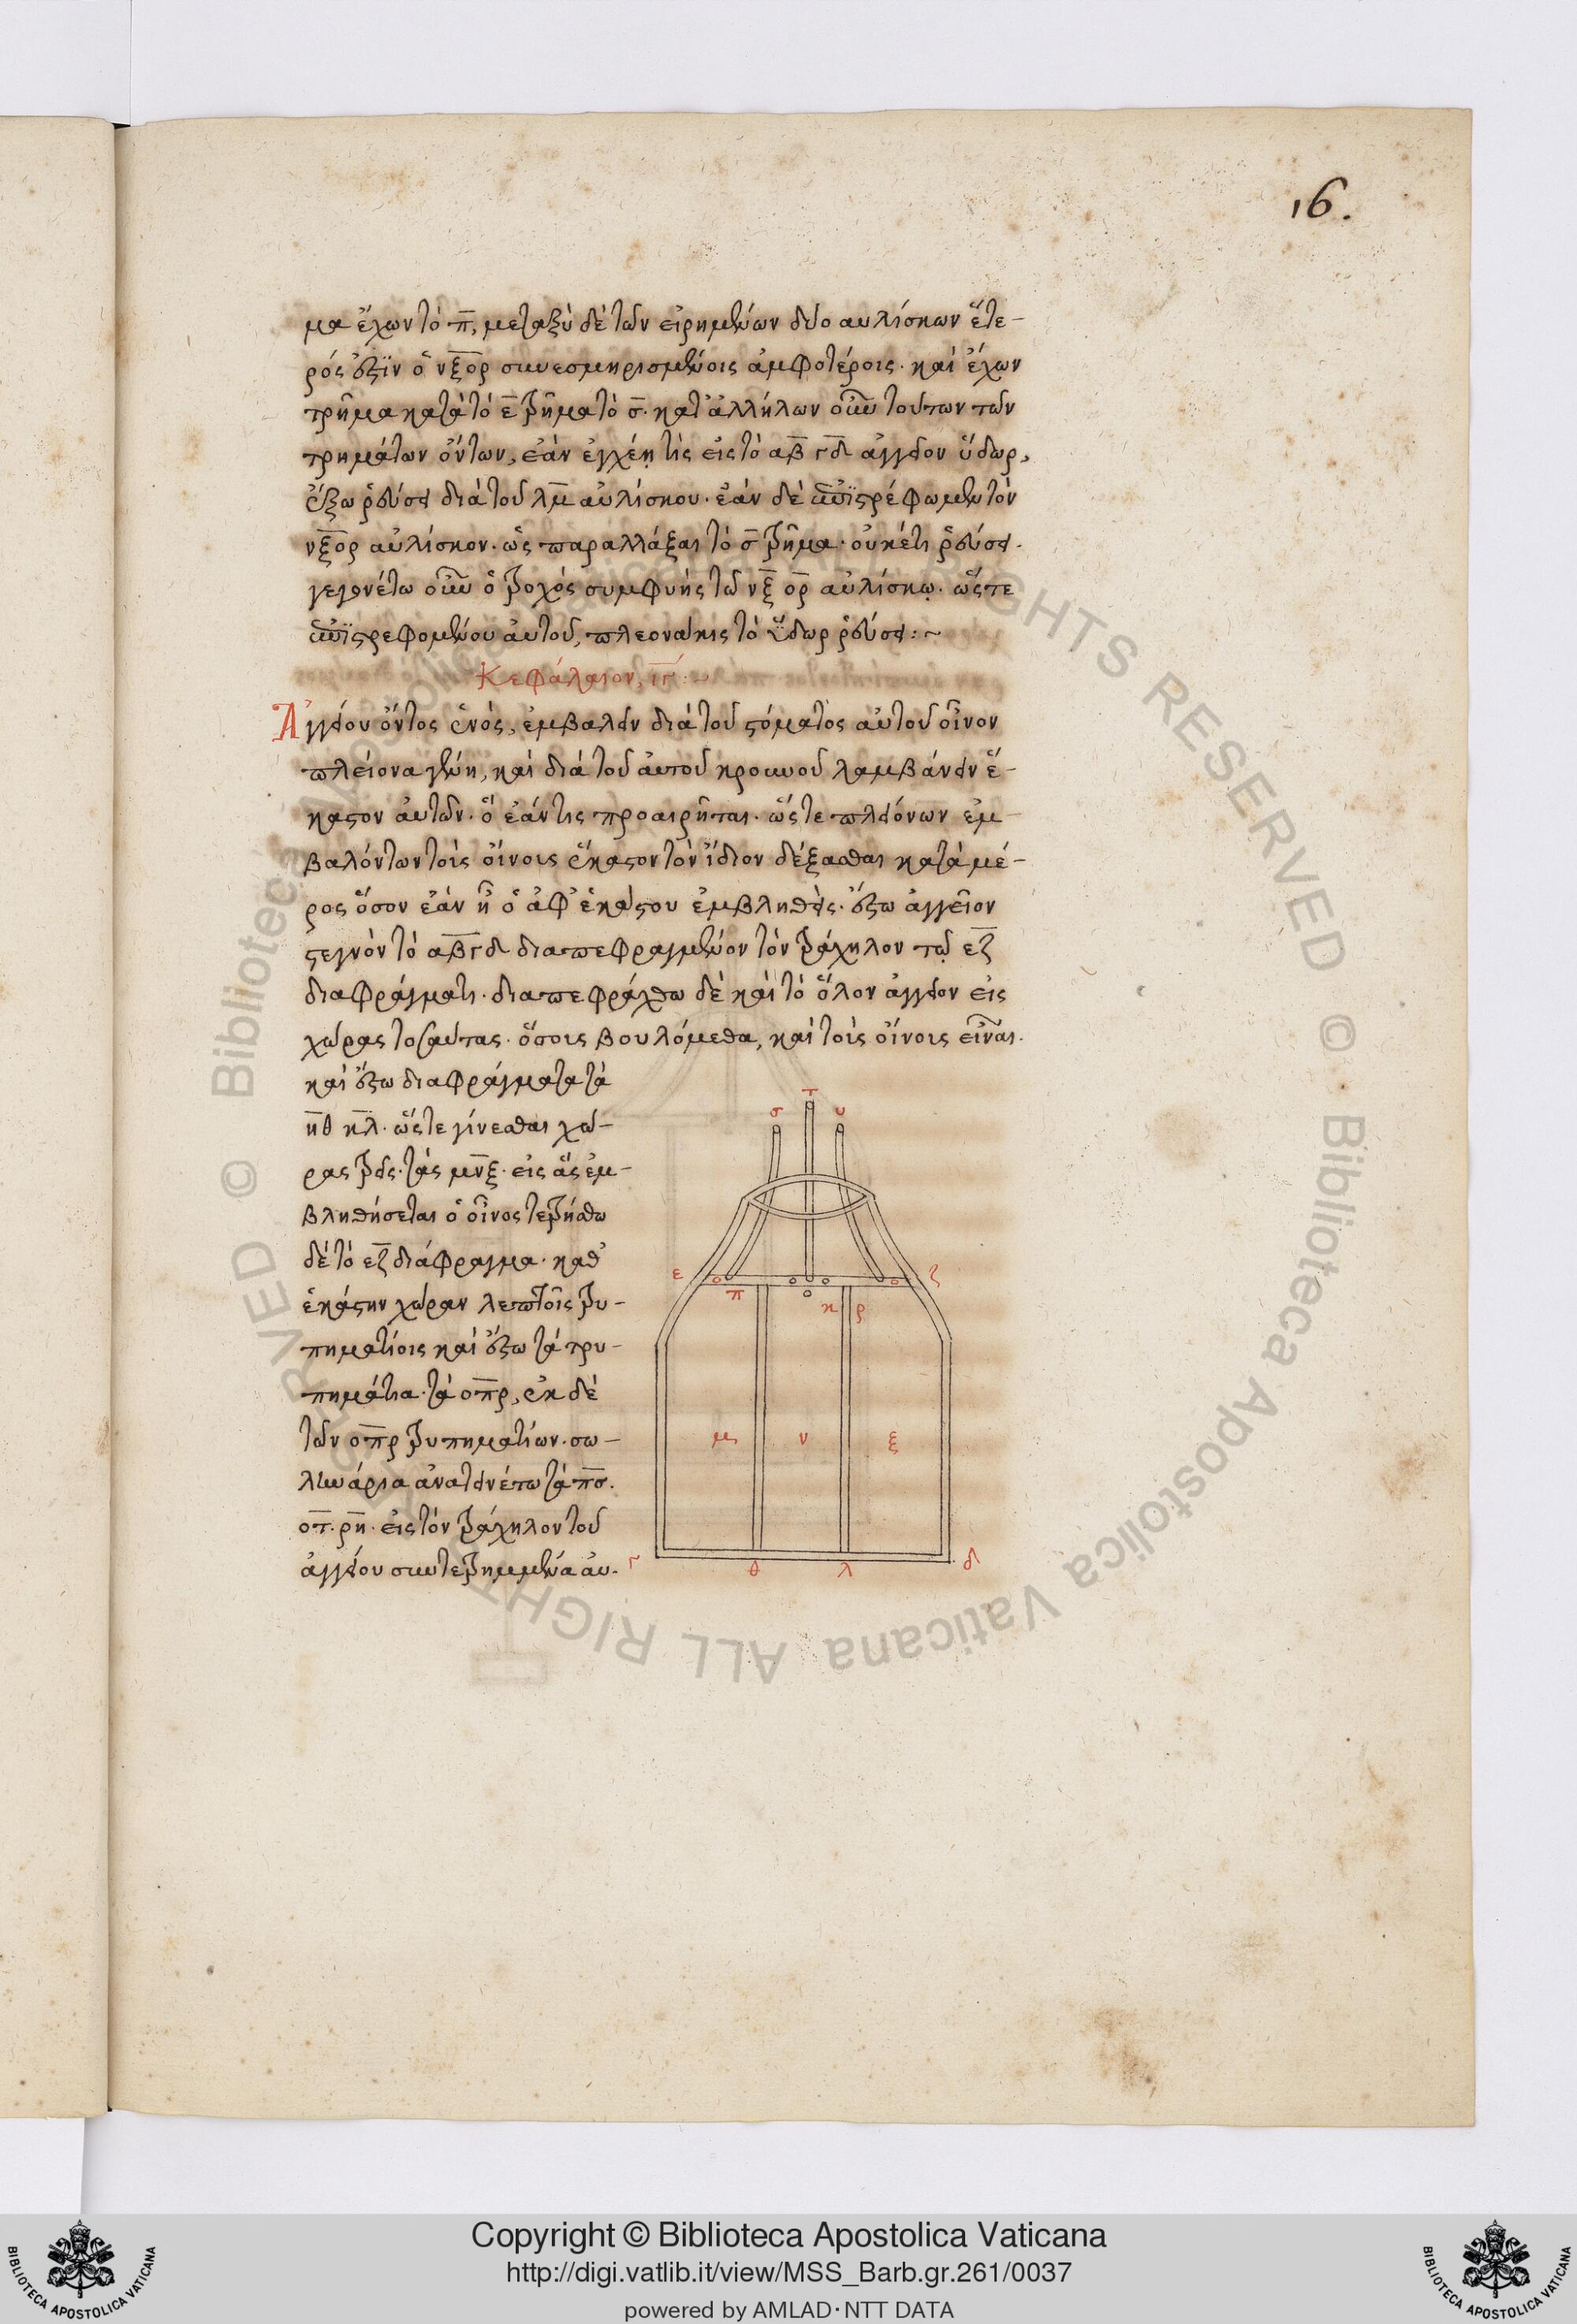 16.
μα ἔχων τὸ π, μεταξὺ δὲ τῶν εἰρημένων δύο αυλίσκων ἕτε-
ρός ἐστϊν ὁ νξορ συνεσμηρισμένοις ἀμφοτέροις· καὶ ἔχων
τρῆμα κατὰ τὸ ε τρῆμα τὸ σ· κατ' ἀλλήλων οὖν τούτων τῶν
τρημάτων ὄντων, ἐὰν ἐγχέῃ τὶς εἰς τὸ αβ γδ ἀγγεῖον ὕδωρ,
ἔξω ῥεύσει διὰ τοῦ λμ αὐλίσκου· ἐὰν δὲ ἐπϊστρέφωμεν τὸν
νξορ αὐλίσκον· ὡς παραλλάξαι τὸ σ τρῆμα· οὐκέτι ῥεύσει·
γεγονέτω οὖν ὁ τροχός συμφυὴς τῶ νξ ορ αὐλίσκῳ· ὥστε
ἐπϊστρεφομένου ἀυτοῦ, πλεονάκις τὸ ὕδωρ ῥεύσει:~
Κεφάλαιον, ιγ:
Ἀγγείου ὄντος ἑνός, ἐμβαλεῖν διὰ τοῦ στόματος αὐτοῦ οἶνον
πλείονα γένη, καὶ διὰ τοῦ ἀυτοῦ κρουνοῦ λαμβάνειν ἕ-
καστον ἀυτῶν· ὃ ἐάν τις προαιρῆται· ὥστε πλειόνων ἐμ-
βαλόντων τοῖς οἴνοις ἕκαστον τὸν ἴδιον δέξασθαι κατὰ μέ-
ρος ὅσον ἐὰν ἦ ὁ ἀφ' ἑκάστου ἐμβληθείς· ἔστω ἀγγεῖον
στεγνὸν τὸ αβγδ διαπεφραγμένον τὸν τράχηλον τῷ εζ
διαφράγματι· διαπεφράχθω δὲ καὶ τὸ ὅλον ἀγγεῖον εἰς
χώρας τοσαύτας· ὅσοις βουλόμεθα, καὶ τοῖς οἴνοις εἶναι·
καὶ ἔστω διαφράγματα τὰ
ηθ κλ· ὥστε γίνεσθαι χώ-
ρας τρεῖς· τὰς μνξ· εἰς ἃς ἐμ-
βληθήσεται ὁ οἶνος τετρήσθω
δὲ τὸ εζ διάφραγμα· καθ'
ἑκάστην χώραν λεπτοῖς τρυ-
πηματίοις καὶ ἔστω τὰ τρυ-
πημάτια· τὰ οπρ, ἐκ δὲ
τῶν οπρ τρυπηματίων· σω-
ληνάρια ἀνατεινέτω τὰ πσ·
οτ· ρη· εἰς τὸν τράχηλον τοῦ
ἀγγείου συντετρημμένα ἀυ-
τ
σ υ
ε ζ
π κ ρ
μ ν ξ
γ θ λ δ
© Biblioteca Apostolica Vaticana ALL RIGHTS RESERVED
Copyright © Biblioteca Apostolica Vaticana
http://digi.vatlib.it/view/MSS_Barb.gr.261/0037
powered by AMLAD·NTT DATA
BIBLIOTECA APOSTOLICA VATICANA
BIBLIOTECA APOSTOLICA VATICANA